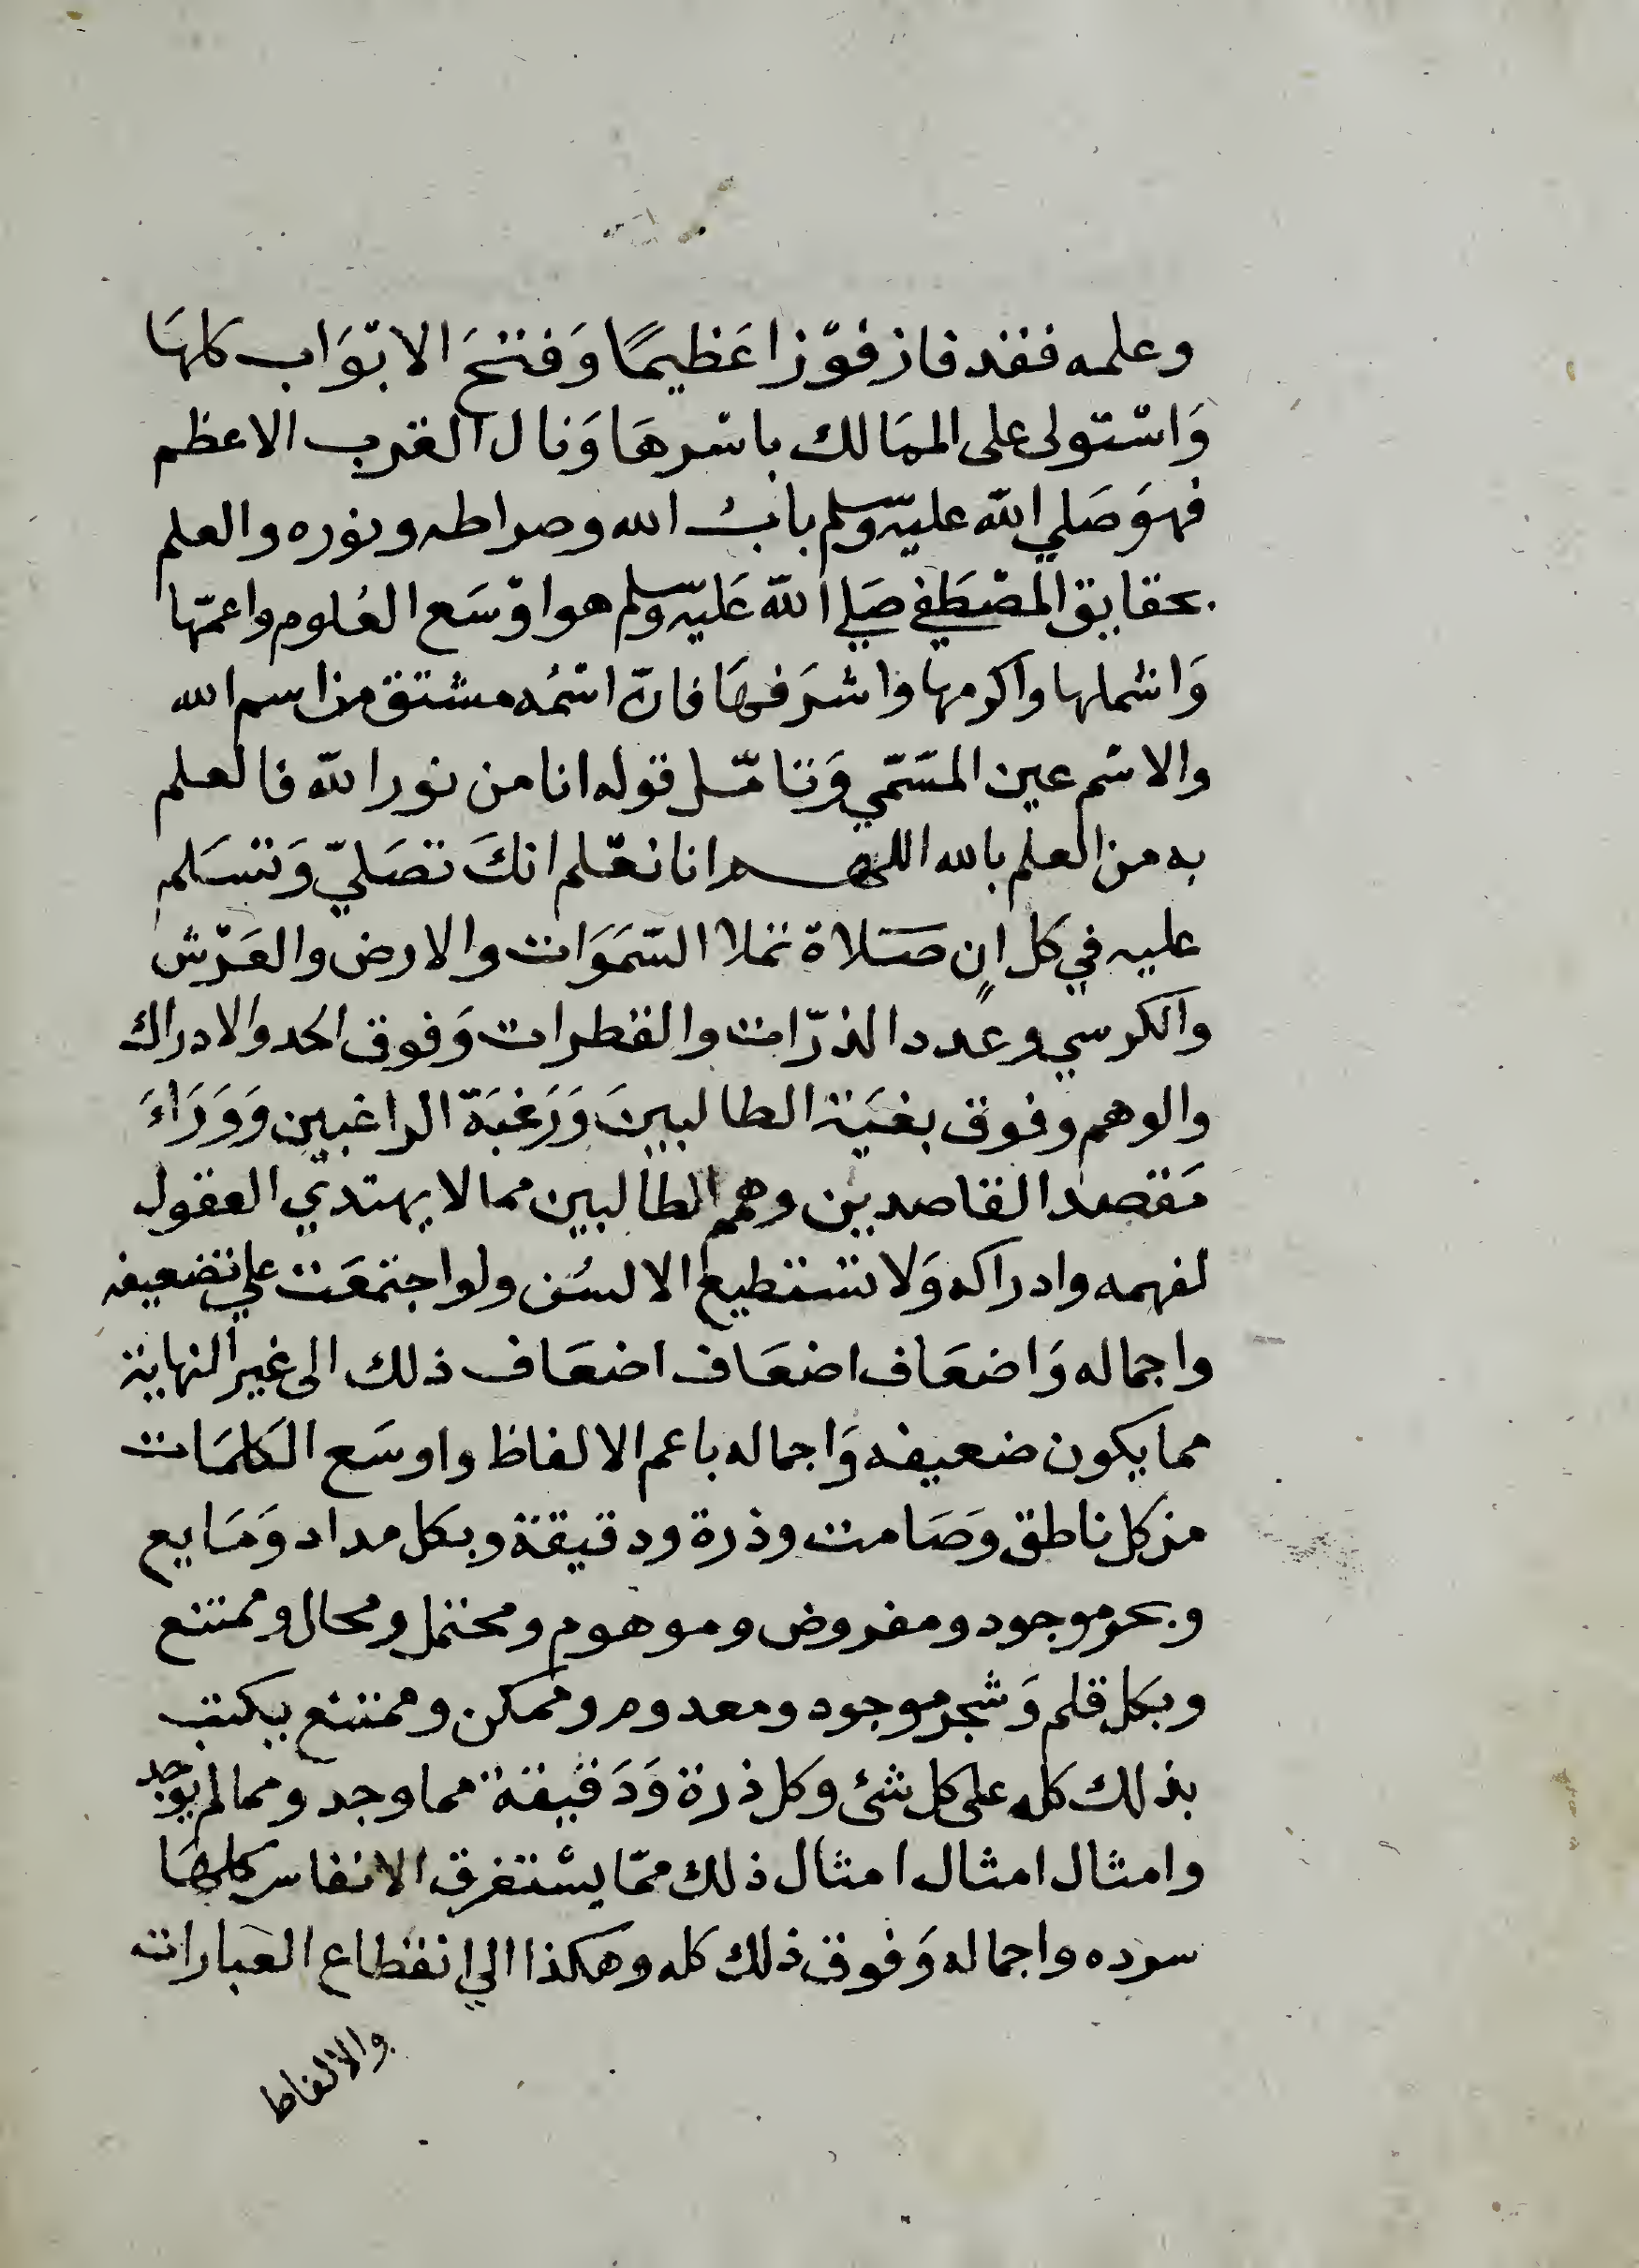 وعلمه فقد فاز فوْزا عَظيمًا وَفتحَ الابْوَاب كلهَا
وَاسْتولى على الممَالك باسْرهَا وَنال القرب الاعظم
فهوَ صَلي اللّه عليْه وسلم بابُ الله وصراطه ونوره والعلم
بحقايق المصْطَفي صَلي اللّه عَليْه وسلم هو اوْسَع العُلوم واعمّها
وَاشملها واكرمها واشرَفهَا فانّ اسْمُه مشتق من اسم الله
والاسْم عين المسَمّي وَتامّل قوله انا من نور اللّه فالعلم
به من العلم بالله اللهم انا نعْلم انكَ تصَليّ وَتسَلم
عليه في كل انٍ صَلاة تملا السّمَوَات والارض والعَرْش
والكرسي وعدد الذرّات والقطرات وَفوق الحد والادراك
والوهم وفوق بغيَة الطالبينَ وَرَغبَة الراغبين وَوَرَاءَ
مَقصد القاصدين وهمم الطالبين مما لا يهتدي العقول
لفهمه وادراكه وَلا تستطيع الالسُن ولو اجتمعَت علي تضعيفه
واجماله وَاضعَاف اضعَاف اضعَاف ذلك الى غير النهاية
مما يكون ضعيفه وَاجماله باعم الالفاظ واوسَع الكلمَات
من كل ناطق وَصَامت وذرة ودقيقة وبكل مداد وَمَايع
وبحر موجود ومفروض وموهوم ومحتمل ومحال وممتنع
وبكل قلم وَشجر موجود ومعدوم وممكن وممتنع يكتب
بذلك كله على كل شئ وكل ذرة وَدَقيقة مما وجد ومما لم يوجد
وامثال امثال امثال ذلك ممّا يسْتغرق الانفاس كلهَا
سرده واجماله وَفوق ذلك كله وهكذا الي انقطاع العبارات
والالفاظ